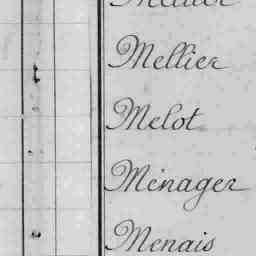 Mellier
Melot
Ménager
Menais